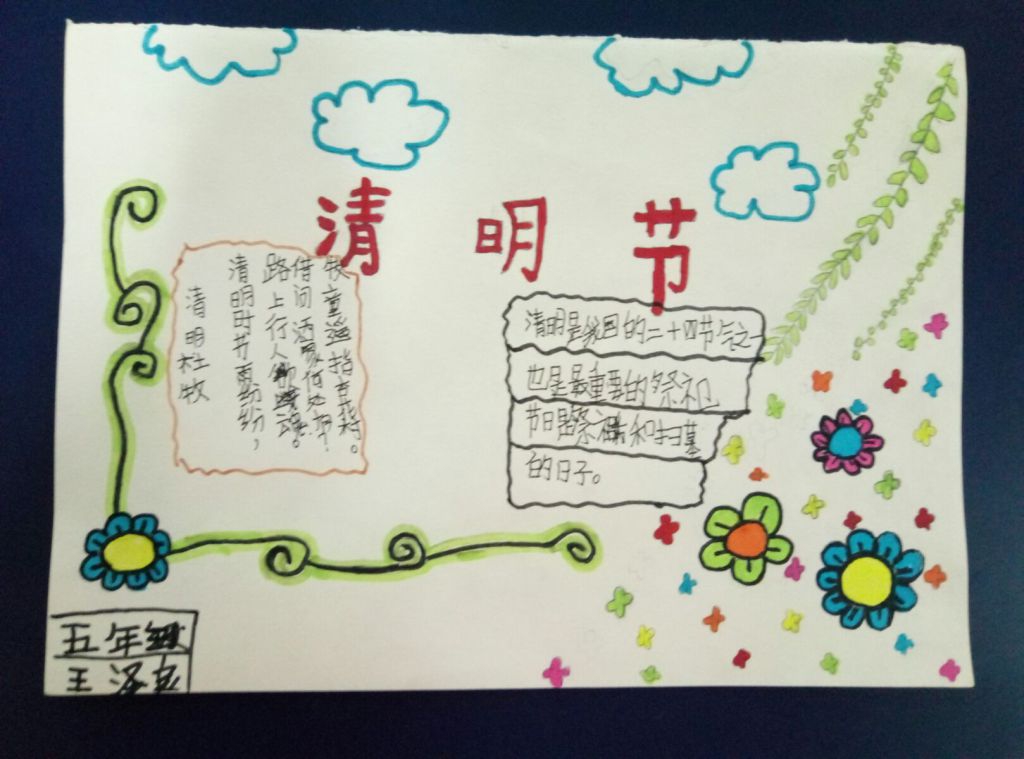 清明节
清明杜牧
清明时节雨纷纷,
路上行人欲断魂。
借问酒家何处有?
牧童遥指杏花村。
清明是我国的二十四节气之一
也是最重要的祭祀
节日是祭祖和扫墓
的日子。
五年级
王泽